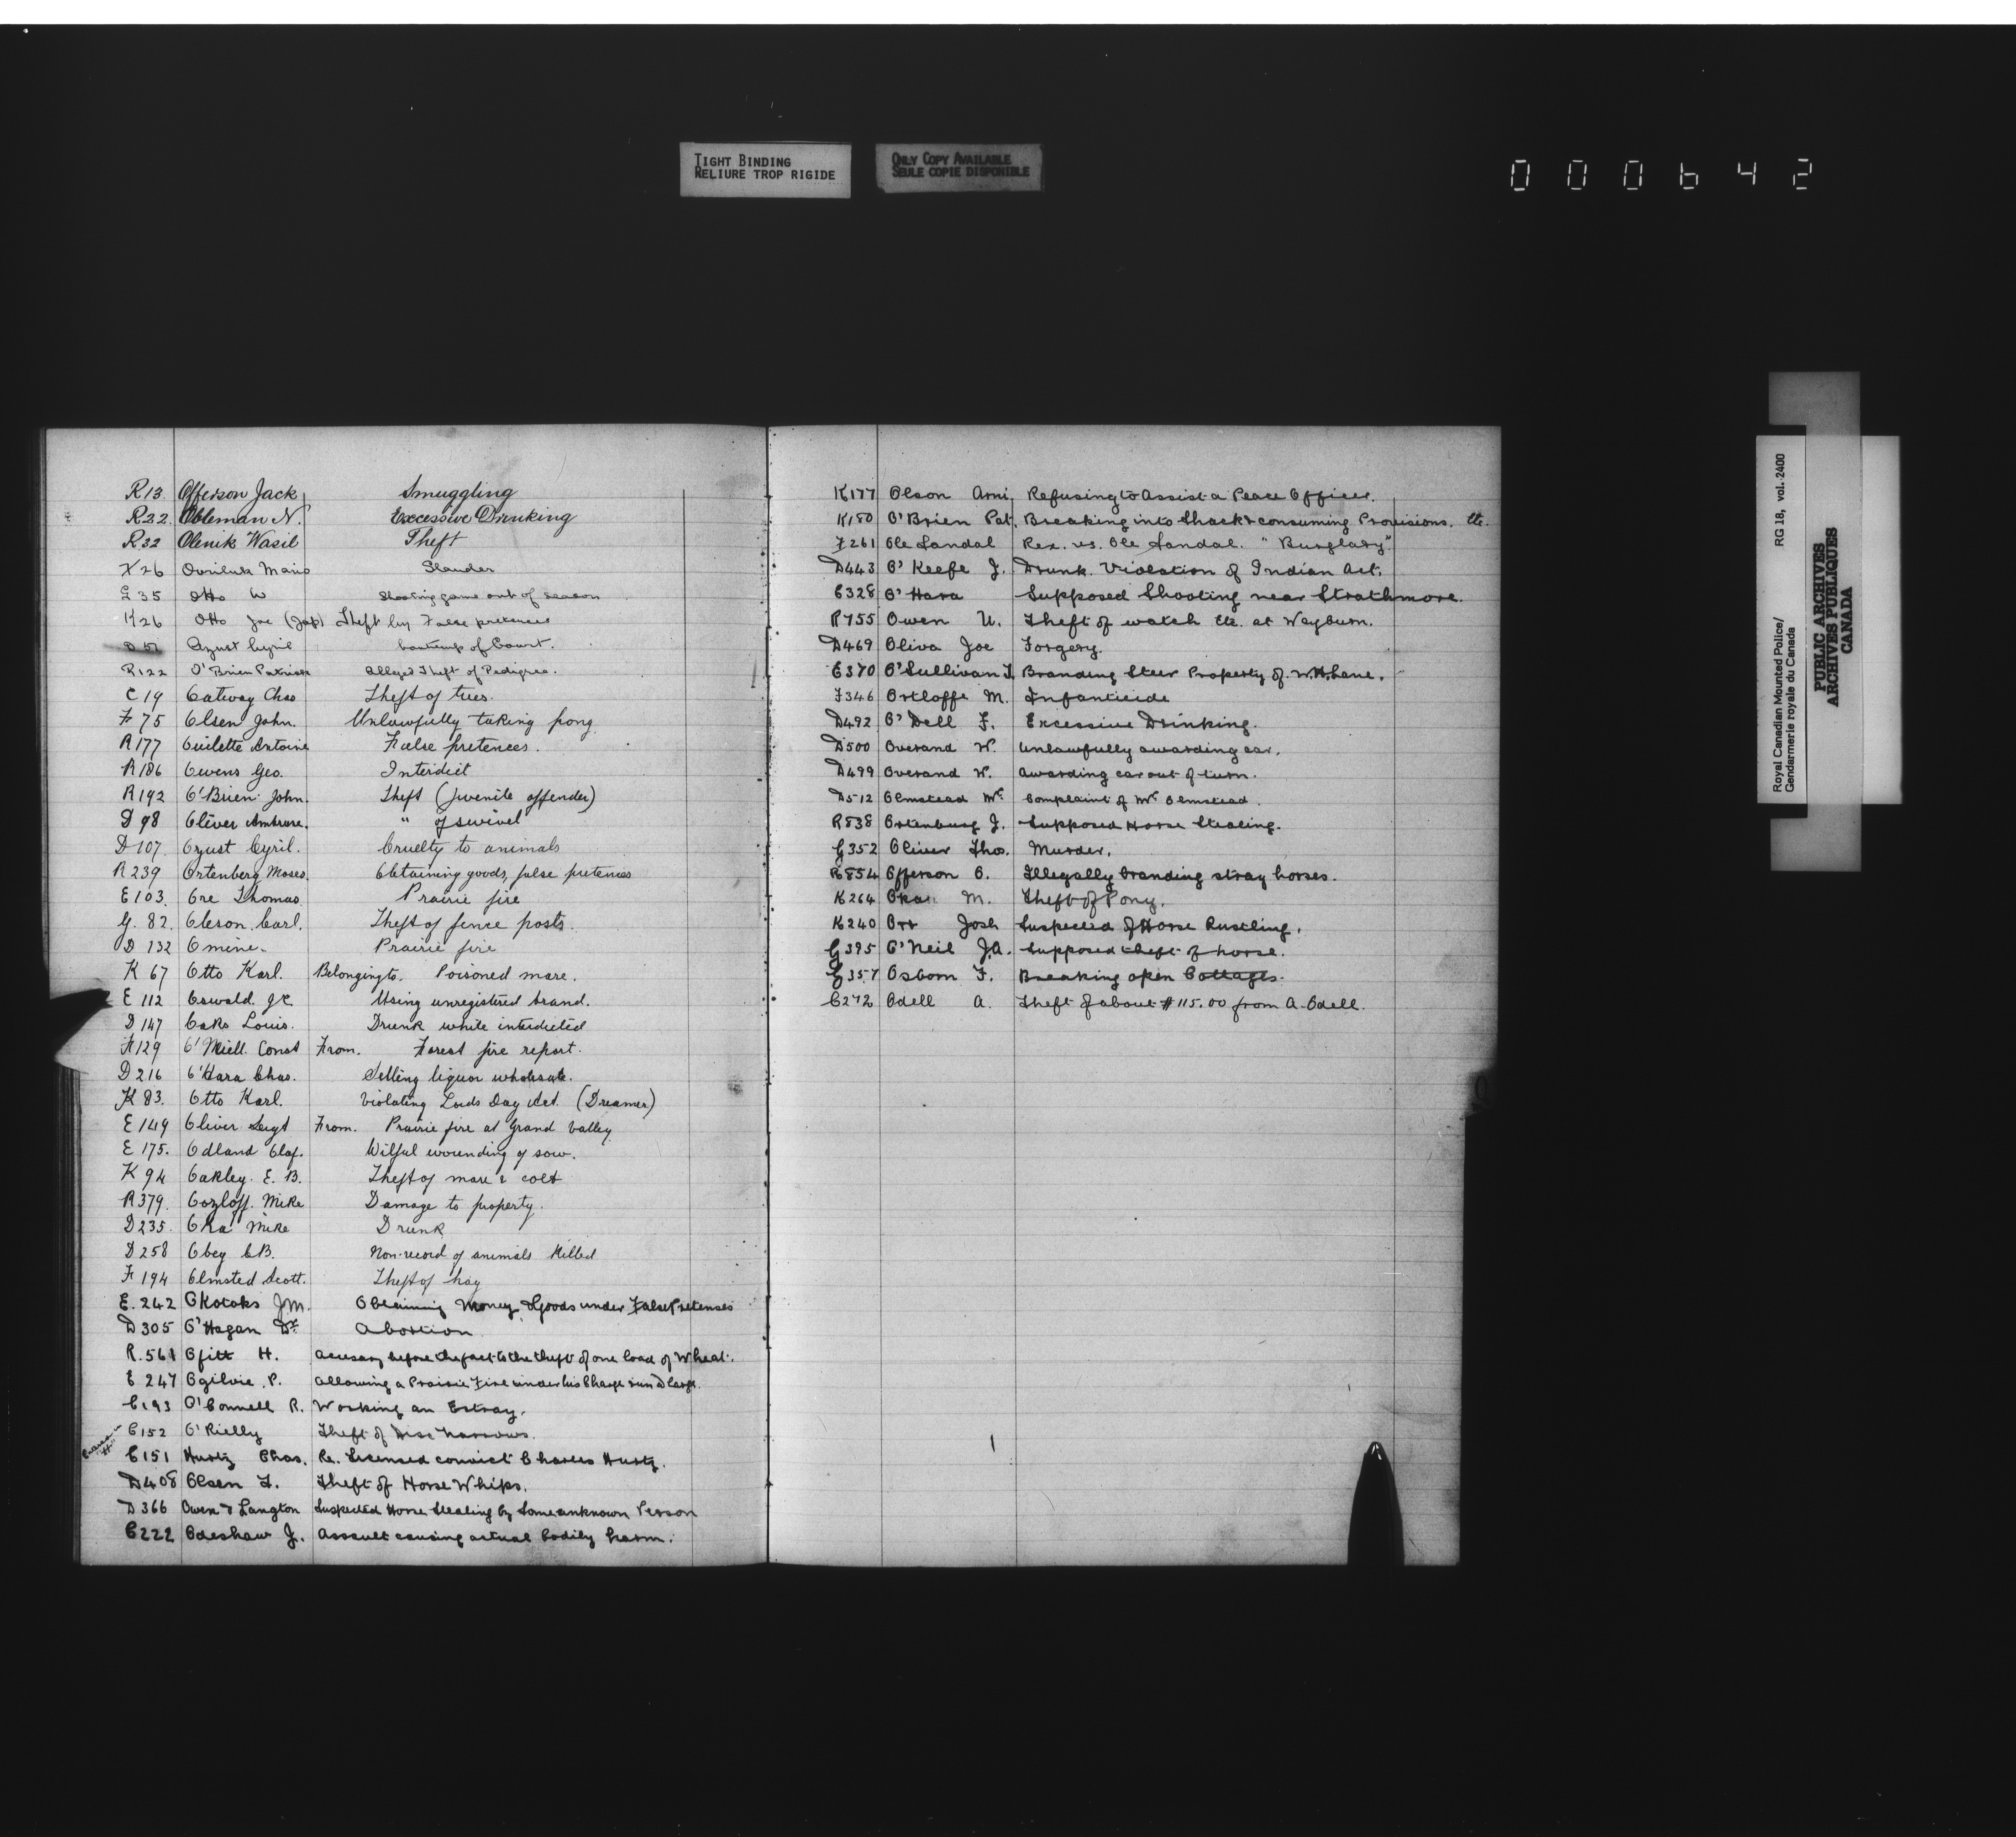 TIGHT BINDING
RELIURE TROP RIGIDE
ONLY COPY AVAILABLE
SEULE COPIE DISPONIBLE
000642
R13. Offerson Jack Smuggling
R22. Obleman N. Excessive Drinking
R32 Olenik Wasil Theft
26 Slander
35 Otto W Shooting game out of season
K26 Otto Joe (Jap) Theft by False pretences
Ozust Cyril Contemp of Court.
R122 O'Brien Patrick Alleged Theft of Pedigree.
C19 Oatway Chas Theft of trees.
F 75 Olsen John. Unlawfully taking pong
R177 Ouilette Antoine False pretences.
R186 Owens Geo. Interdict
R192 O'Brien John. Theft (juvenile offender)
D 98 Oliver Ambrose. " of swivel
D 107 Ozust Cyril. Cruelty to animals
R239 Ortenberg Moses. Obtaining goods, false pretences
E103. Ore Thomas Prairie fire
G. 82. Oleson Carl. Theft of fence posts.
D 132 Omine. Prairie fire
K 67 Otto Karl. Belonging to. Poisoned mare.
E 112 Oswald. Using unregistered brand.
D 147 Oaks Louis. Drunk while interdicted
129 O'Niell. Const From. Forest fire report.
D 216 O'Hara Chas. Selling liquor wholesale.
K 83. Otto Karl. Violating Lords Day Act. (Dreamer)
E 149 Oliver Sergt From. Prairie fire at Grand Valley
E 175. Odland Olaf. Wilful wounding of sow.
K 94 Oakley. E. B. Theft of mare & colt
R379. Oozloff. Mike Damage to property.
D235. Oka Mike Drunk
D258 Obey C.B. Non-record of animals killed
F 194 Olmsted Scott. Theft of hay
E.242 Okotoks J.M. Obtaining Money & Goods under False Pretenses
D305 O'Hagan Dr. Abortion
R.561 Ofitt H. Accessary before the fact to the theft of one load of Wheat.
E 247 Ogilvie P. Allowing a Prairie Fire under his Charge run at large.
C193 O'Connell R. Working an Estray.
C152 O'Rielly Theft of Disc Harrows.
C151 Hurtz Chas. Re. Licensed convict Charles Hurtz.
D408 Olsen T. Theft of Horse Whips.
D366 Owen & Langton Suspected Horse Stealing by Some unknown Person
C222 Odeshaw J. Assault causing actual bodily harm.
K177 Olson Arni Refusing to Assist a Peace Officer.
K180 O'Brien Pat. Breaking into Shack & consuming Provisions. Etc.
F261 Ole Landal Rex. vs. Ole Landal. "Burglary".
D443 O'Keefe J. Drunk. Violation of Indian Act.
C328 O'Hara Supposed Shooting near Strathmore.
R755 Owen U. Theft of watch Etc. at Weyburn.
D469 Oliva Joe Forgery.
E370 O'Sullivan T. Branding Steer Property of W.H. Lane.
F346 Ortloffe M. Infanticide
D492 O'Dell F. Excessive Drinking.
D500 Overand W. Unlawfully awarding car.
D499 Overand W. Awarding car out of turn.
D512 Olmstead Mr. Complaint of Mr Olmstead.
R838 Ortenburg J. Supposed Horse Stealing.
G352 Oliver Thos. Murder.
R854 Offerson O. Illegally branding stray horses.
K264 M. Theft of Pony.
K240 Orr Josh Suspected of Horse Rustling.
G395 O'Neil J.A. Supposed theft of horse.
G357 Osborn F. Breaking open Cottages.
C272 Odell A. Theft of about $115.00 from A. Odell.
Royal Canadian Mounted Police/ RG 18, vol. 2400
Gendarmerie royale du Canada
PUBLIC ARCHIVES
ARCHIVES PUBLIQUES
CANADA